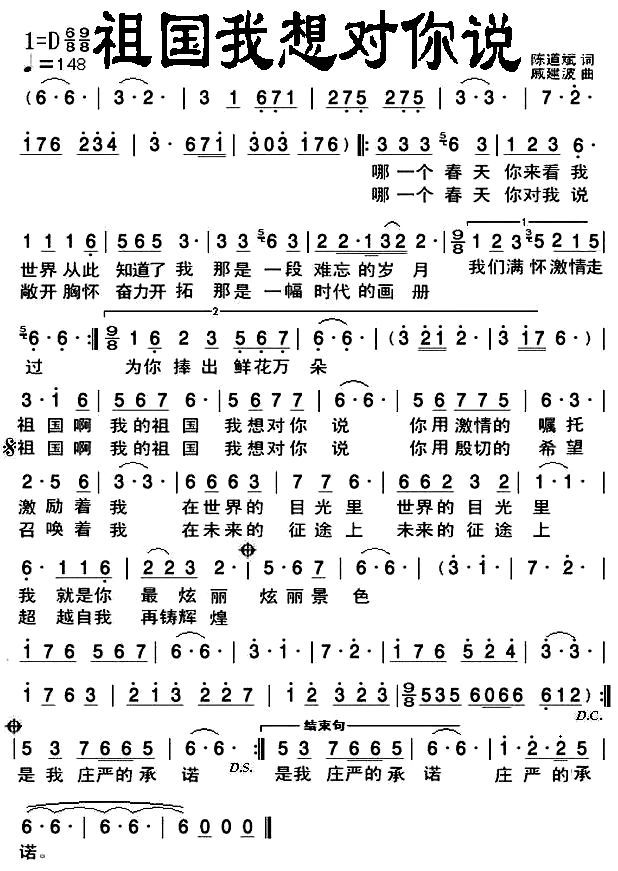 祖国我想对你说
1=D 6/8 9/8
♩=148
陈道斌 词
戚建波 曲
(6·6· | 3·2· | 3 1 671 | 275 275 | 3·5· | 7·2·
176 234 | 3· 671 | 303 176) ‖: 333 6 3 | 1 2 3 6·
哪一个 春 天 你来看 我
哪一个 春 天 你对我 说
1 1 1 6 | 565 3· | 3·3 6 3 | 22·132 2· | 9/8 1 2 3 5 2 1 5 |
世界 从此 知道了 我 那是 一段 难忘 的岁 月 我们满 怀激情走
敞开 胸怀 奋力开 拓 那是 一幅 时代 的画 册
6·6· :‖ 9/8 1 6 2 3 567 | 6·6· | (3 21 2· | 3 17 6·) |
过 为你 捧 出 鲜花万 朵
3·1 6 | 7 7 5 6 7 | 5 6 7 5 6 7 | 6·6· | 5 6 7 7 5 | 6·3· |
祖 国啊 我的祖 国 我想对你 说 你用激情的 嘱托
祖 国啊 我的祖 国 我想对你 说 你用殷切的 希望
2·5 6 | 3·3· | 6 6 6 3 | 7 7 6· | 6 6 2 3 2 | 1·1· |
激 励着 我 在世界的 目光里 世界的目光里
召 唤着 我 在未来的 征途上 未来的征途上
6· 1 1 6 | 2 2 3 2· | 5·6 7 | 6·6· | (3·1· | 7·2·
我 就是你 最 炫丽 炫丽景 色
超 越自我 再铸辉 煌
176 567 | 6·6· | 3·1· | 7·2· | 176 524 | 3·3·
1 7 6 3 | 213 227 | 12 323 | 9/8 535 6066 612) :‖
D.C.
结束句
5 3 7 6 6 5 | 6·6· :‖ 5 3 7 6 6 5 | 6·6· | 1·2·2 5 |
是我 庄严的 承 诺 D.S. 是我 庄严的 承 诺 庄 严的承
6·6· | 6·6· | 6 0 0 0 ‖
诺。